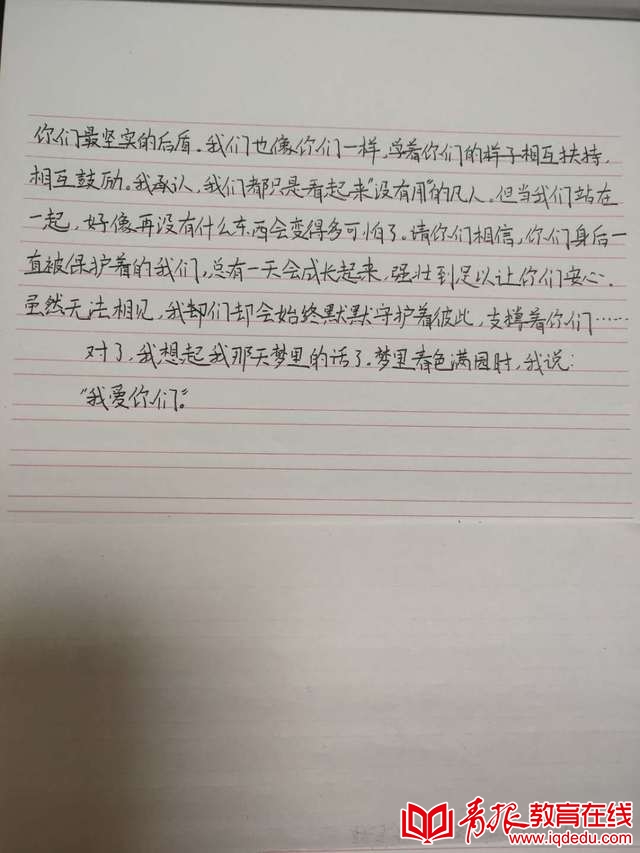 你们最坚实的后盾。我们也像你们一样,学着你们的样子相互扶持,
相互鼓励。我承认,我们都只是看起来“没有用”的凡人。但当我们站在
一起,好像再没有什么东西会变得多可怕了。请你们相信,你们身后一
直被保护着的我们,总有一天会成长起来,强壮到足以让你们安心。
虽然无法相见,我却们却会始终默默守护着彼此,支撑着你们……
对了,我想起我那天梦里的话了。梦里春色满园时,我说:
“我爱你们”。
青报教育在线
www.iqdedu.com